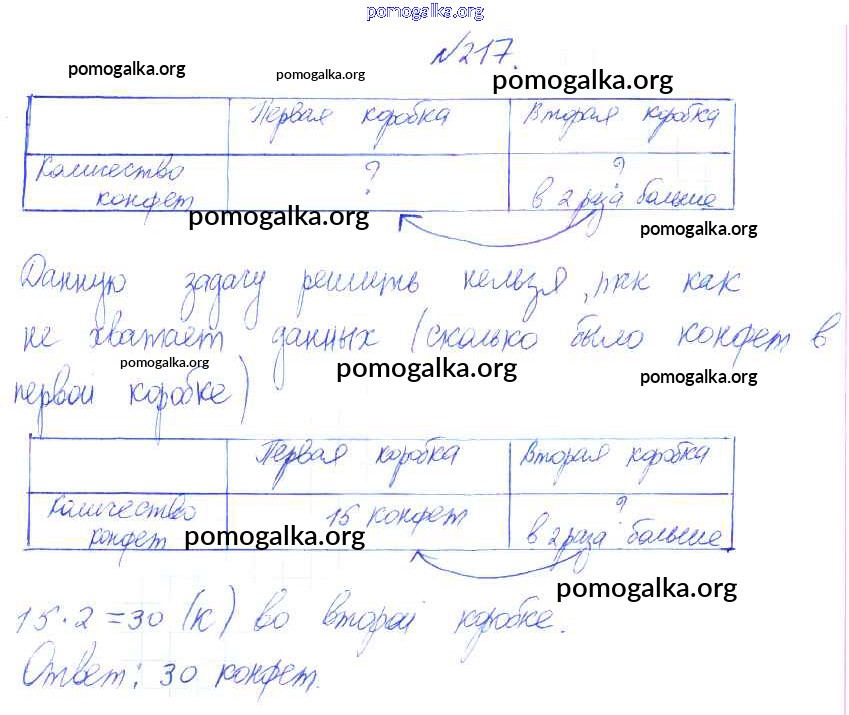 pomogalka.org
№217.
pomogalka.org pomogalka.org pomogalka.org
Первая коробка Вторая коробка
Количество конфет ? ? в 2 раза больше
pomogalka.org pomogalka.org
Данную задачу решить нельзя, так как
не хватает данных (сколько было конфет в
pomogalka.org pomogalka.org pomogalka.org
первой коробке)
Первая коробка Вторая коробка
Количество конфет 15 конфет ? в 2 раза больше
pomogalka.org
pomogalka.org
15·2=30 (к) во второй коробке.
Ответ: 30 конфет.